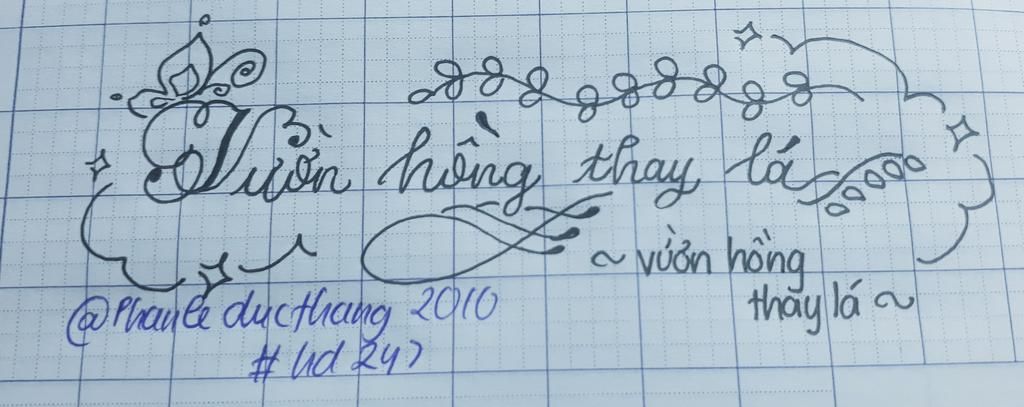 Vườn hồng thay lá
~ vườn hồng
thay lá ~
@Phanle ducthang 2010
# hd 247